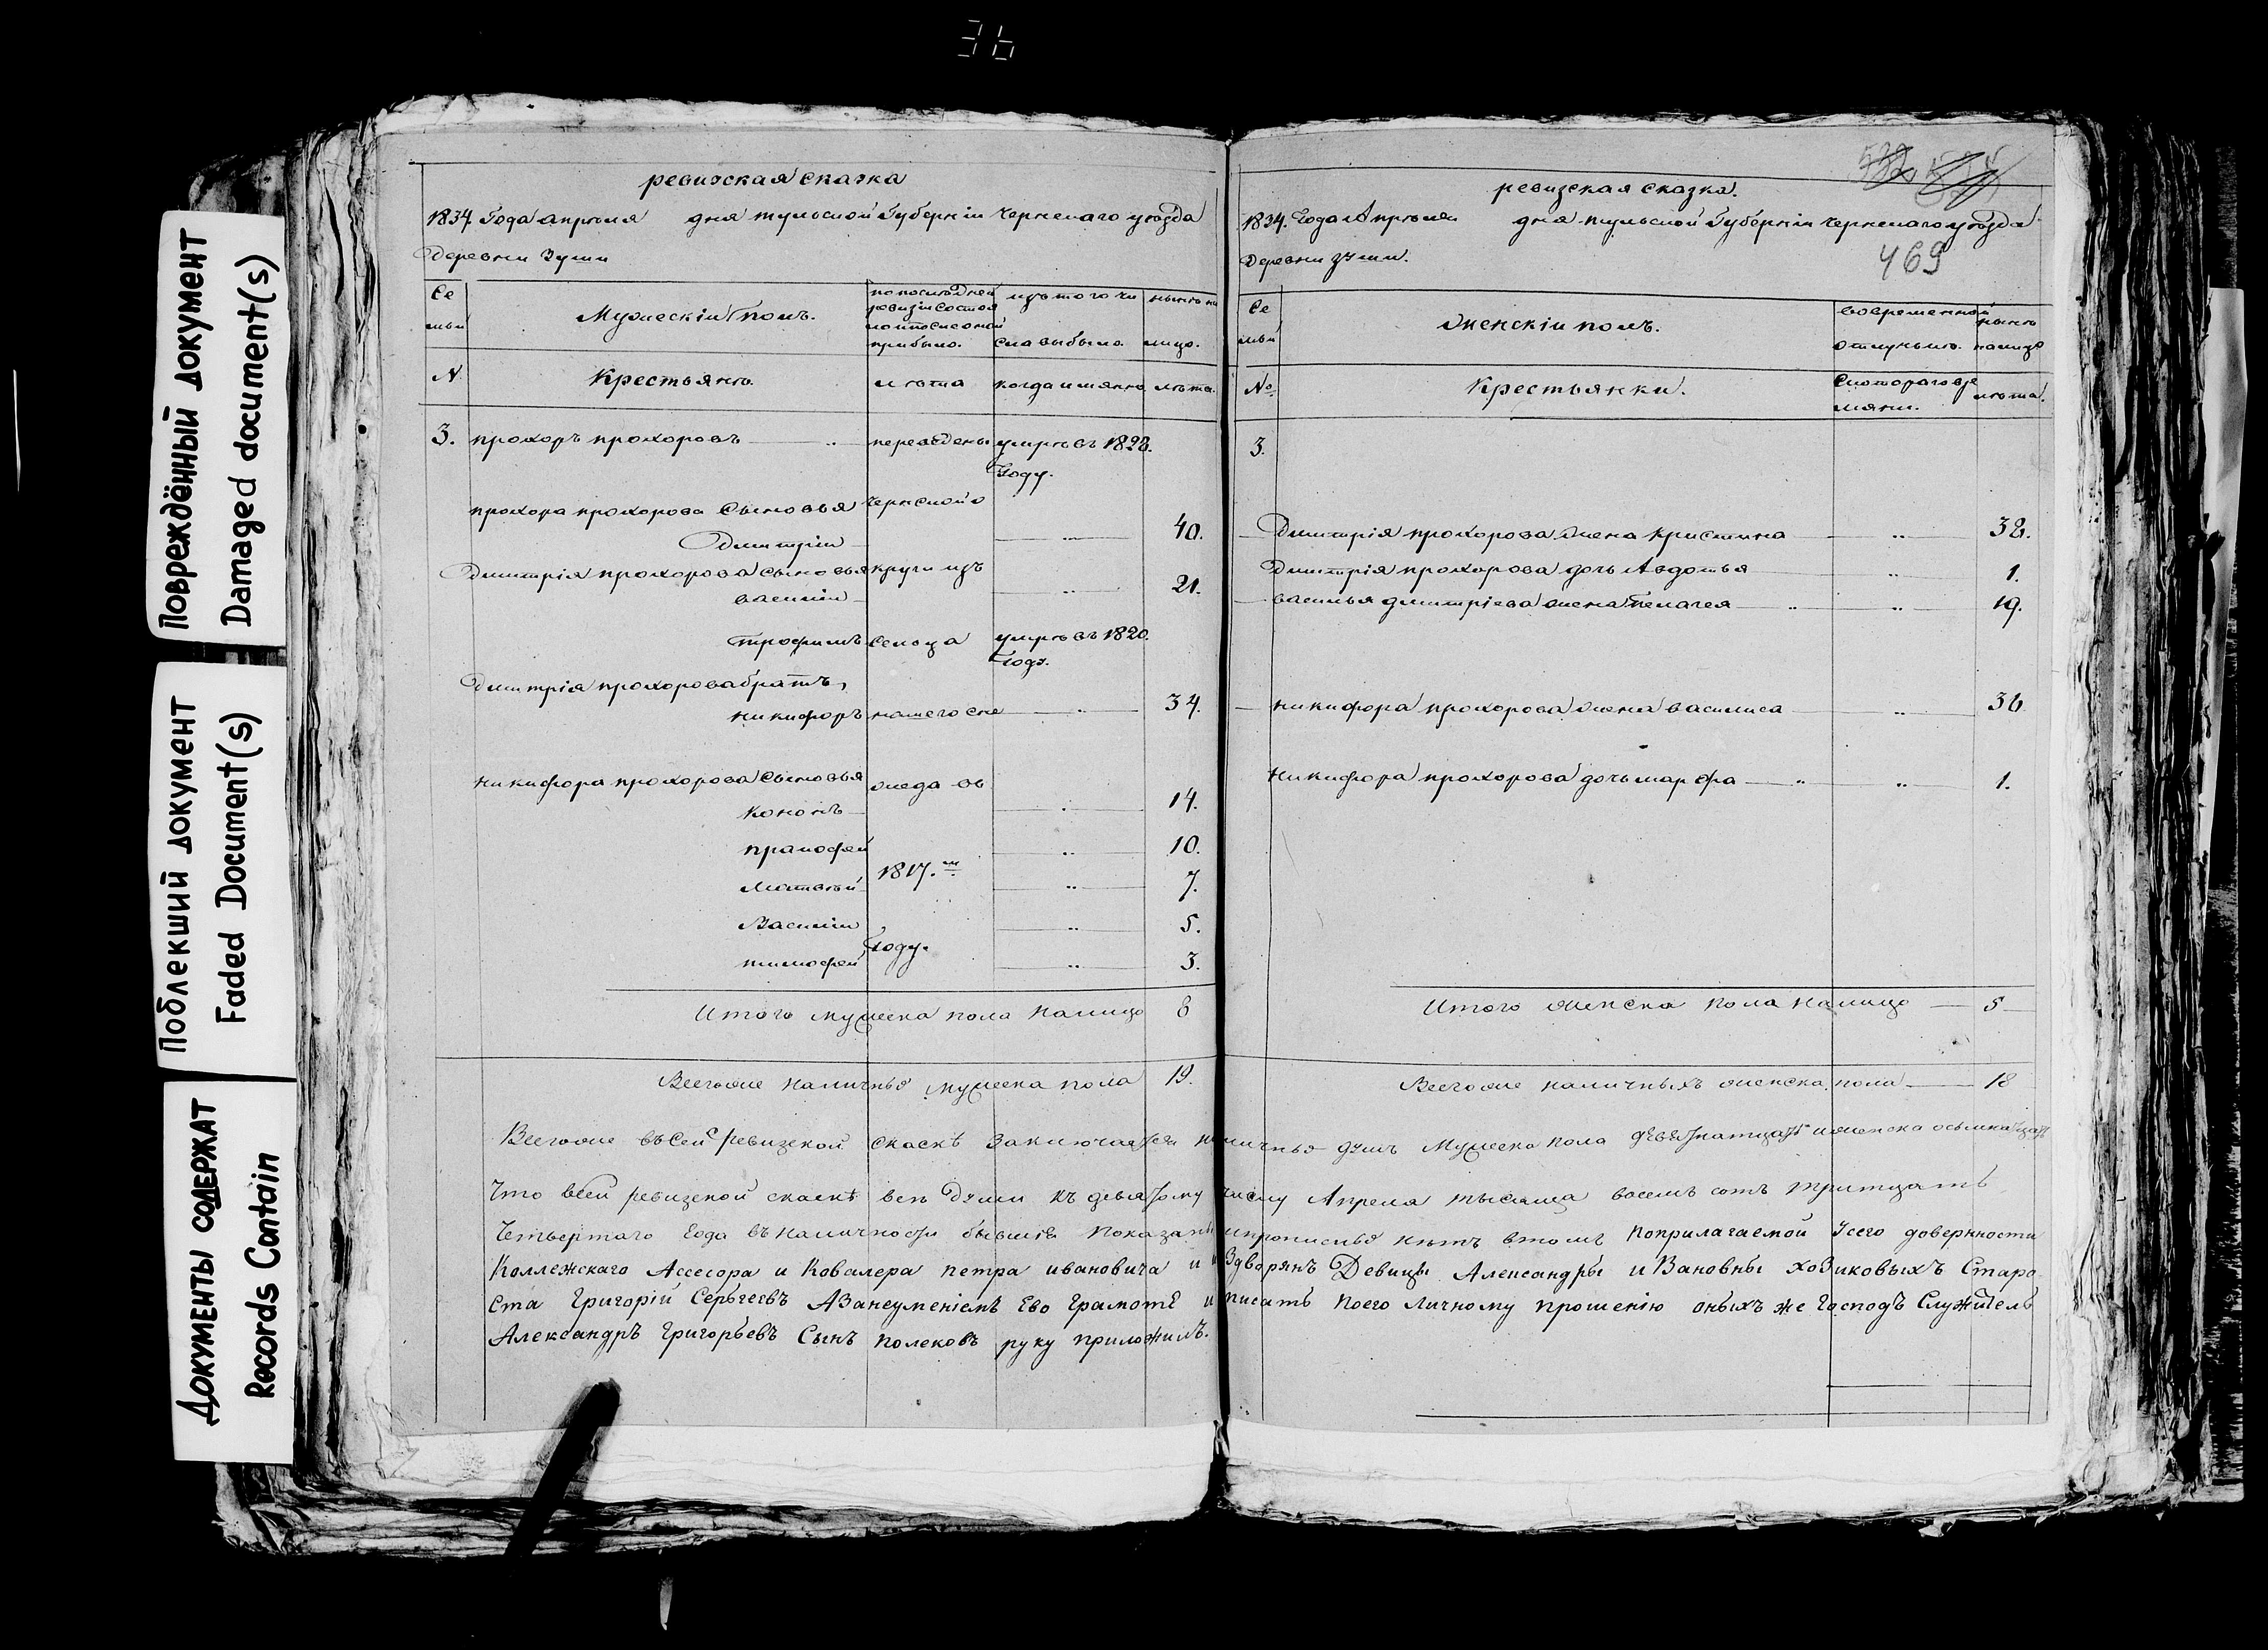 36
Повреждённый документ
Damaged document(s)
Поблекший документ
Faded Document(s)
Документы содержат
Records Contain
ревизская сказка
1834 Года апреля дня тульской Губернiи чернскаго уезда
Деревни Зуши
Се
мьи
Мужескiй полъ.
по последней
ревизiи состоя
ло и после оной
прибыло.
изъ того чи
сла выбыло.
ныне на
лицо.
N
Крестьяне.
лета
когда имянно
лета.
3. прохоръ прохоровъ переведены умре въ 1828.
Году.
прохора прохорова сыновья чернской
Дмитрiй 40.
Дмитрiя прохорова сыновья округи изъ
василiй 21.
трофимъ сельца умре въ 1820.
Году.
Дмитрiя прохорова братъ,
никифоръ нашего сне 34.
никифора прохорова сыновья жеда въ
кононъ 14.
10.
матвей 1817.м 7.
Василiй 5.
тимофей Году. 3.
Итого мужеска пола налицо 8
Всего же наличныхъ мужеска пола 19.
532
469
ревизская сказка.
1834. Года Апреля дня тульской Губернiи чернскаго уезда
Деревни зуши.
Се
мьи
Женскiй полъ.
во временной
отлучке.
ныне
налицо
№
Крестьянки.
лета.
3.
Дмитрiя прохорова жена кристина 38.
Дмитрiя прохорова дочь Авдотья 1.
василья дмитрiева жена пелагея 19.
никифора прохорова жена василиса 36
никифора прохорова дочь марфа 1.
Итого женска пола налицо 5
Всего же наличныхъ женска пола 18
Всего же въ сей ревизской скаске заключается наличныхъ душъ Мужеска пола девятнатцать и женска осьмнатцать
Что всей ревизской скаске все Души къ девятому числу Апреля тысяща восемъ сотъ тритцать
Четвертаго Года въ наличности бывшiе показаны и прописныхъ нетъ в томъ поприлагаемой усего доверности
Коллежскаго Ассесора и Ковалера петра ивановича и изъ дворянъ Девицы Александры иВановны хоЗиковыхъ Старо
ста Григорiй Сергеевъ АЗанеуменiемъ Ево Грамоте и писать поего личному прошенiю оныхъ же Господъ Служитель
Александръ Григорьевъ Сынъ полековъ руку приложилъ.